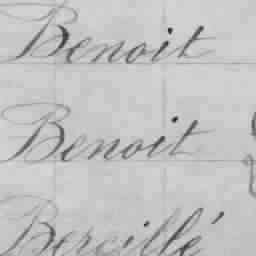 Benoit
Benoit
Bercillé